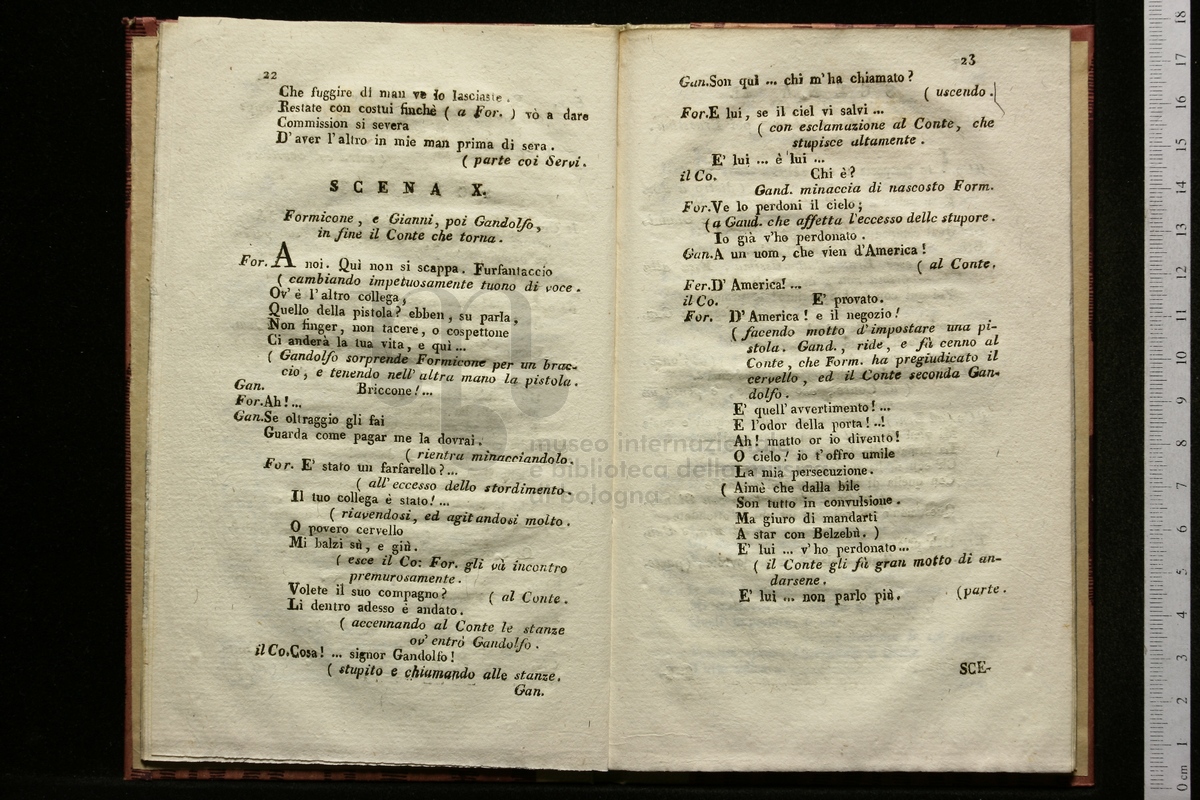 22
Che fuggire di man ve lo lasciaste.
Restate con costui finchè ( a For. ) vò a dare
Commission si severa
D' aver l'altro in mie man prima di sera.
( parte coi Servi.
SCENA X.
Formicone, e Gianni, poi Gandolfo,
in fine il Conte che torna.
For. A noi. Quì non si scappa. Furfantaccio
( cambiando impetuosamente tuono di voce.
Ov' è l'altro collega,
Quello della pistola? ebben, su parla,
Non finger, non tacere, o cospettone
Ci anderà la tua vita, e quì ...
( Gandolfo sorprende Formicone per un brac-
cio, e tenendo nell' altra mano la pistola.
Gan. Briccone! ...
For. Ah! ...
Gan. Se oltraggio gli fai
Guarda come pagar me la dovrai.
( rientra minacciandolo.
For. E' stato un farfarello? ...
( all' eccesso dello stordimento.
Il tuo collega è stato! ...
( riavendosi, ed agitandosi molto.
O povero cervello
Mi balzi sù, e giù.
( esce il Co: For. gli và incontro
premurosamente.
Volete il suo compagno? ( al Conte.
Lì dentro adesso é andato.
( accennando al Conte le stanze
ov' entrò Gandolfo.
il Co. Cosa! ... signor Gandolfo!
( stupito e chiamando alle stanze.
Gan.
23
Gan. Son quì ... chi m'ha chiamato?
( uscendo.
For. E lui, se il ciel vi salvi ...
( con esclamazione al Conte, che
stupisce altamente.
E' lui ... è lui ...
il Co. Chi è?
Gand. minaccia di nascosto Form.
For. Ve lo perdoni il cielo;
( a Gand. che affetta l'eccesso dello stupore.
Io già v'ho perdonato.
Gan. A un uom, che vien d'America!
( al Conte.
Fer. D' America! ...
il Co. E' provato.
For. D' America! e il negozio!
( facendo motto d'impostare una pi-
stola. Gand., ride, e fà cenno al
Conte, che Form. ha pregiudicato il
cervello, ed il Conte seconda Gan-
dolfo.
E' quell' avvertimento! ...
E l'odor della porta! ..!
Ah! matto or io divento!
O cielo! io t'offro umile
La mia persecuzione.
( Aimè che dalla bile
Son tutto in convulsione.
Ma giuro di mandarti
A star con Belzebù. )
E' lui ... v'ho perdonato ...
( il Conte gli fà gran motto di an-
darsene.
E' lui ... non parlo più. (parte.
SCE-
museo internazio
e biblioteca della
di bologna